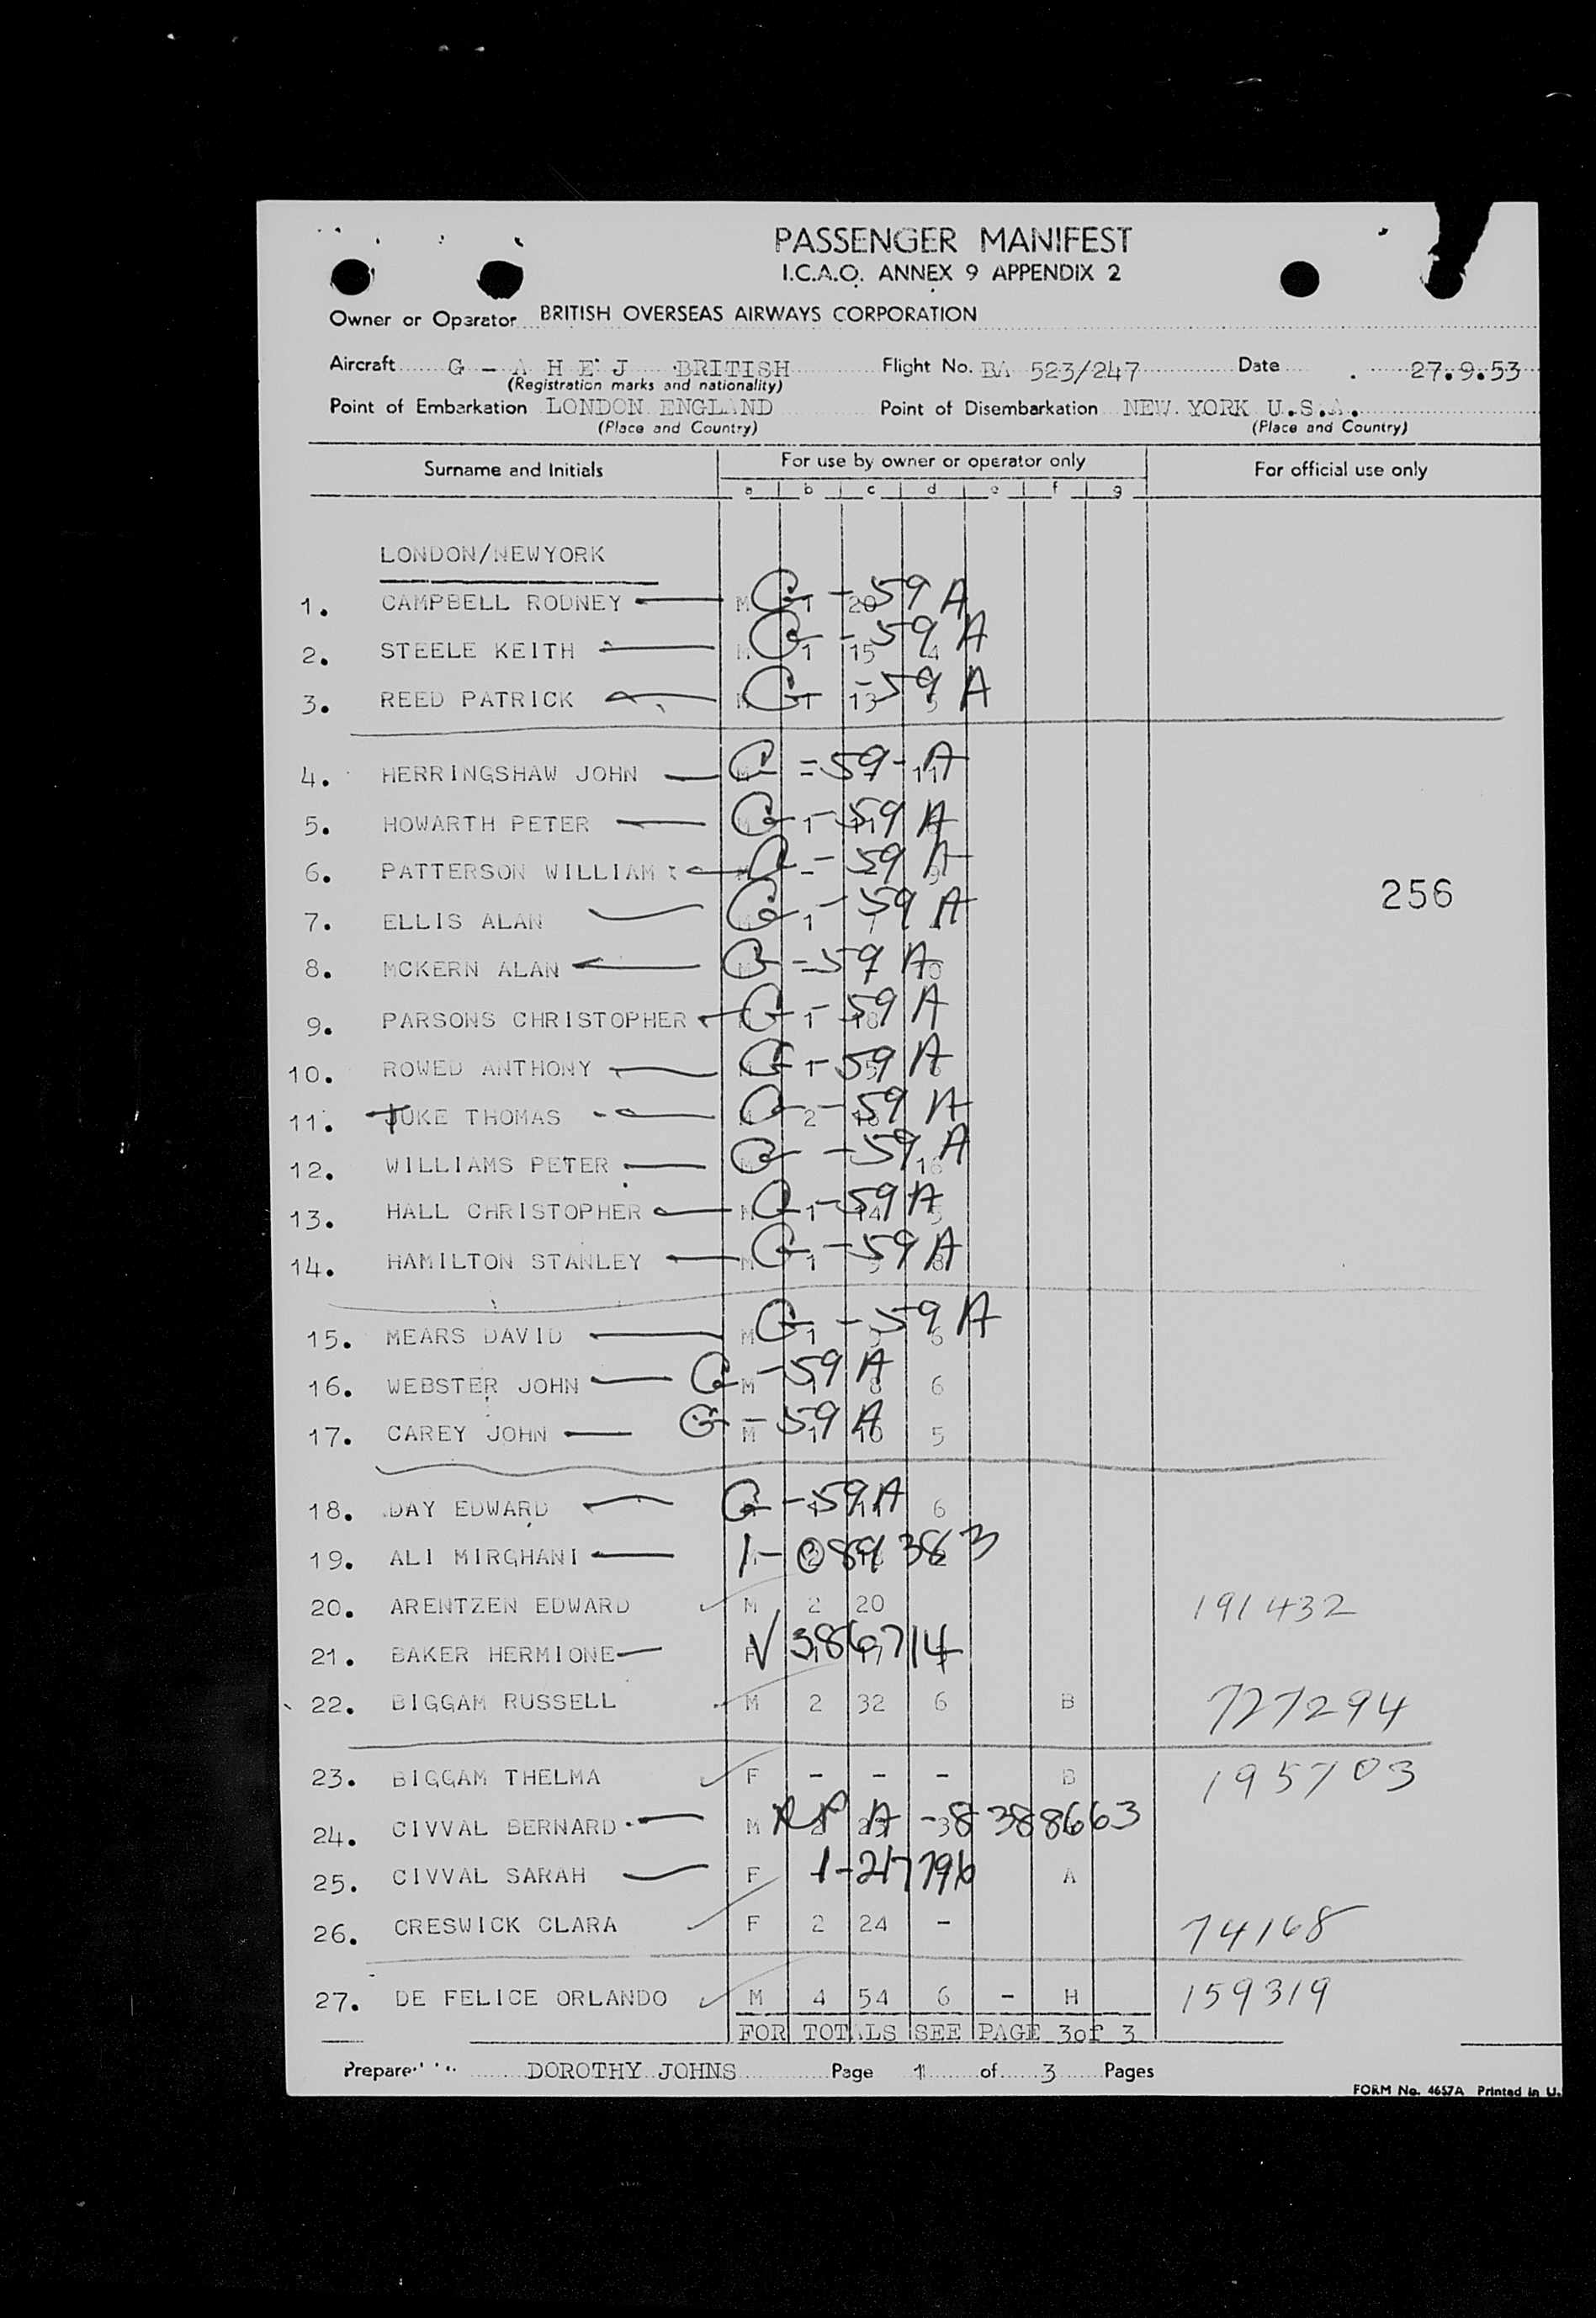 PASSENGER MANIFEST
I.C.A.O. ANNEX 9 APPENDIX 2
Owner or Operator BRITISH OVERSEAS AIRWAYS CORPORATION
Aircraft G - A H E J BRITISH Flight No. BA 523/247 Date 27.9.53
(Registration marks and nationality)
Point of Embarkation LONDON ENGLAND Point of Disembarkation NEW YORK U.S.A.
(Place and Country) (Place and Country)
Surname and Initials For use by owner or operator only For official use only
a b c d e f g
LONDON/NEWYORK
1. CAMPBELL RODNEY M G - 59 A 1 20
2. STEELE KEITH G - 59 A 1 15 4
3. REED PATRICK G - 59 A 1 13 5
4. HERRINGSHAW JOHN G = 59 - A 11
5. HOWARTH PETER G - 59 A 1
6. PATTERSON WILLIAM G - 59 A 9
256
7. ELLIS ALAN G - 59 A 1
8. MCKERN ALAN G - 59 A
9. PARSONS CHRISTOPHER G - 59 A 1
10. ROWED ANTHONY G - 59 A 1
11. JUKE THOMAS G - 59 A 2
12. WILLIAMS PETER G - 59 A 16
13. HALL CHRISTOPHER M G - 59 A 1 14 5
14. HAMILTON STANLEY M G - 59 A 1 8
15. MEARS DAVID M G - 59 A 1 6
16. WEBSTER JOHN G - 59 A M 1 8 6
17. CAREY JOHN G - 59 A M 1 10 5
18. DAY EDWARD G - 59 A 6
19. ALI MIRGHANI 1 - 0899383
20. ARENTZEN EDWARD M 2 20 191432
21. BAKER HERMIONE V 386714
22. BIGGAM RUSSELL M 2 32 6 B 727294
23. BIGGAM THELMA F - - - B 195703
24. CIVVAL BERNARD M A - 8388663
25. CIVVAL SARAH F 1 - 217796 A
26. CRESWICK CLARA F 2 24 - 74168
27. DE FELICE ORLANDO M 4 54 6 - H 159319
FOR TOTALS SEE PAGE 3of 3
DOROTHY JOHNS Page 1 of 3 Pages
FORM No. 4657A Printed in U.